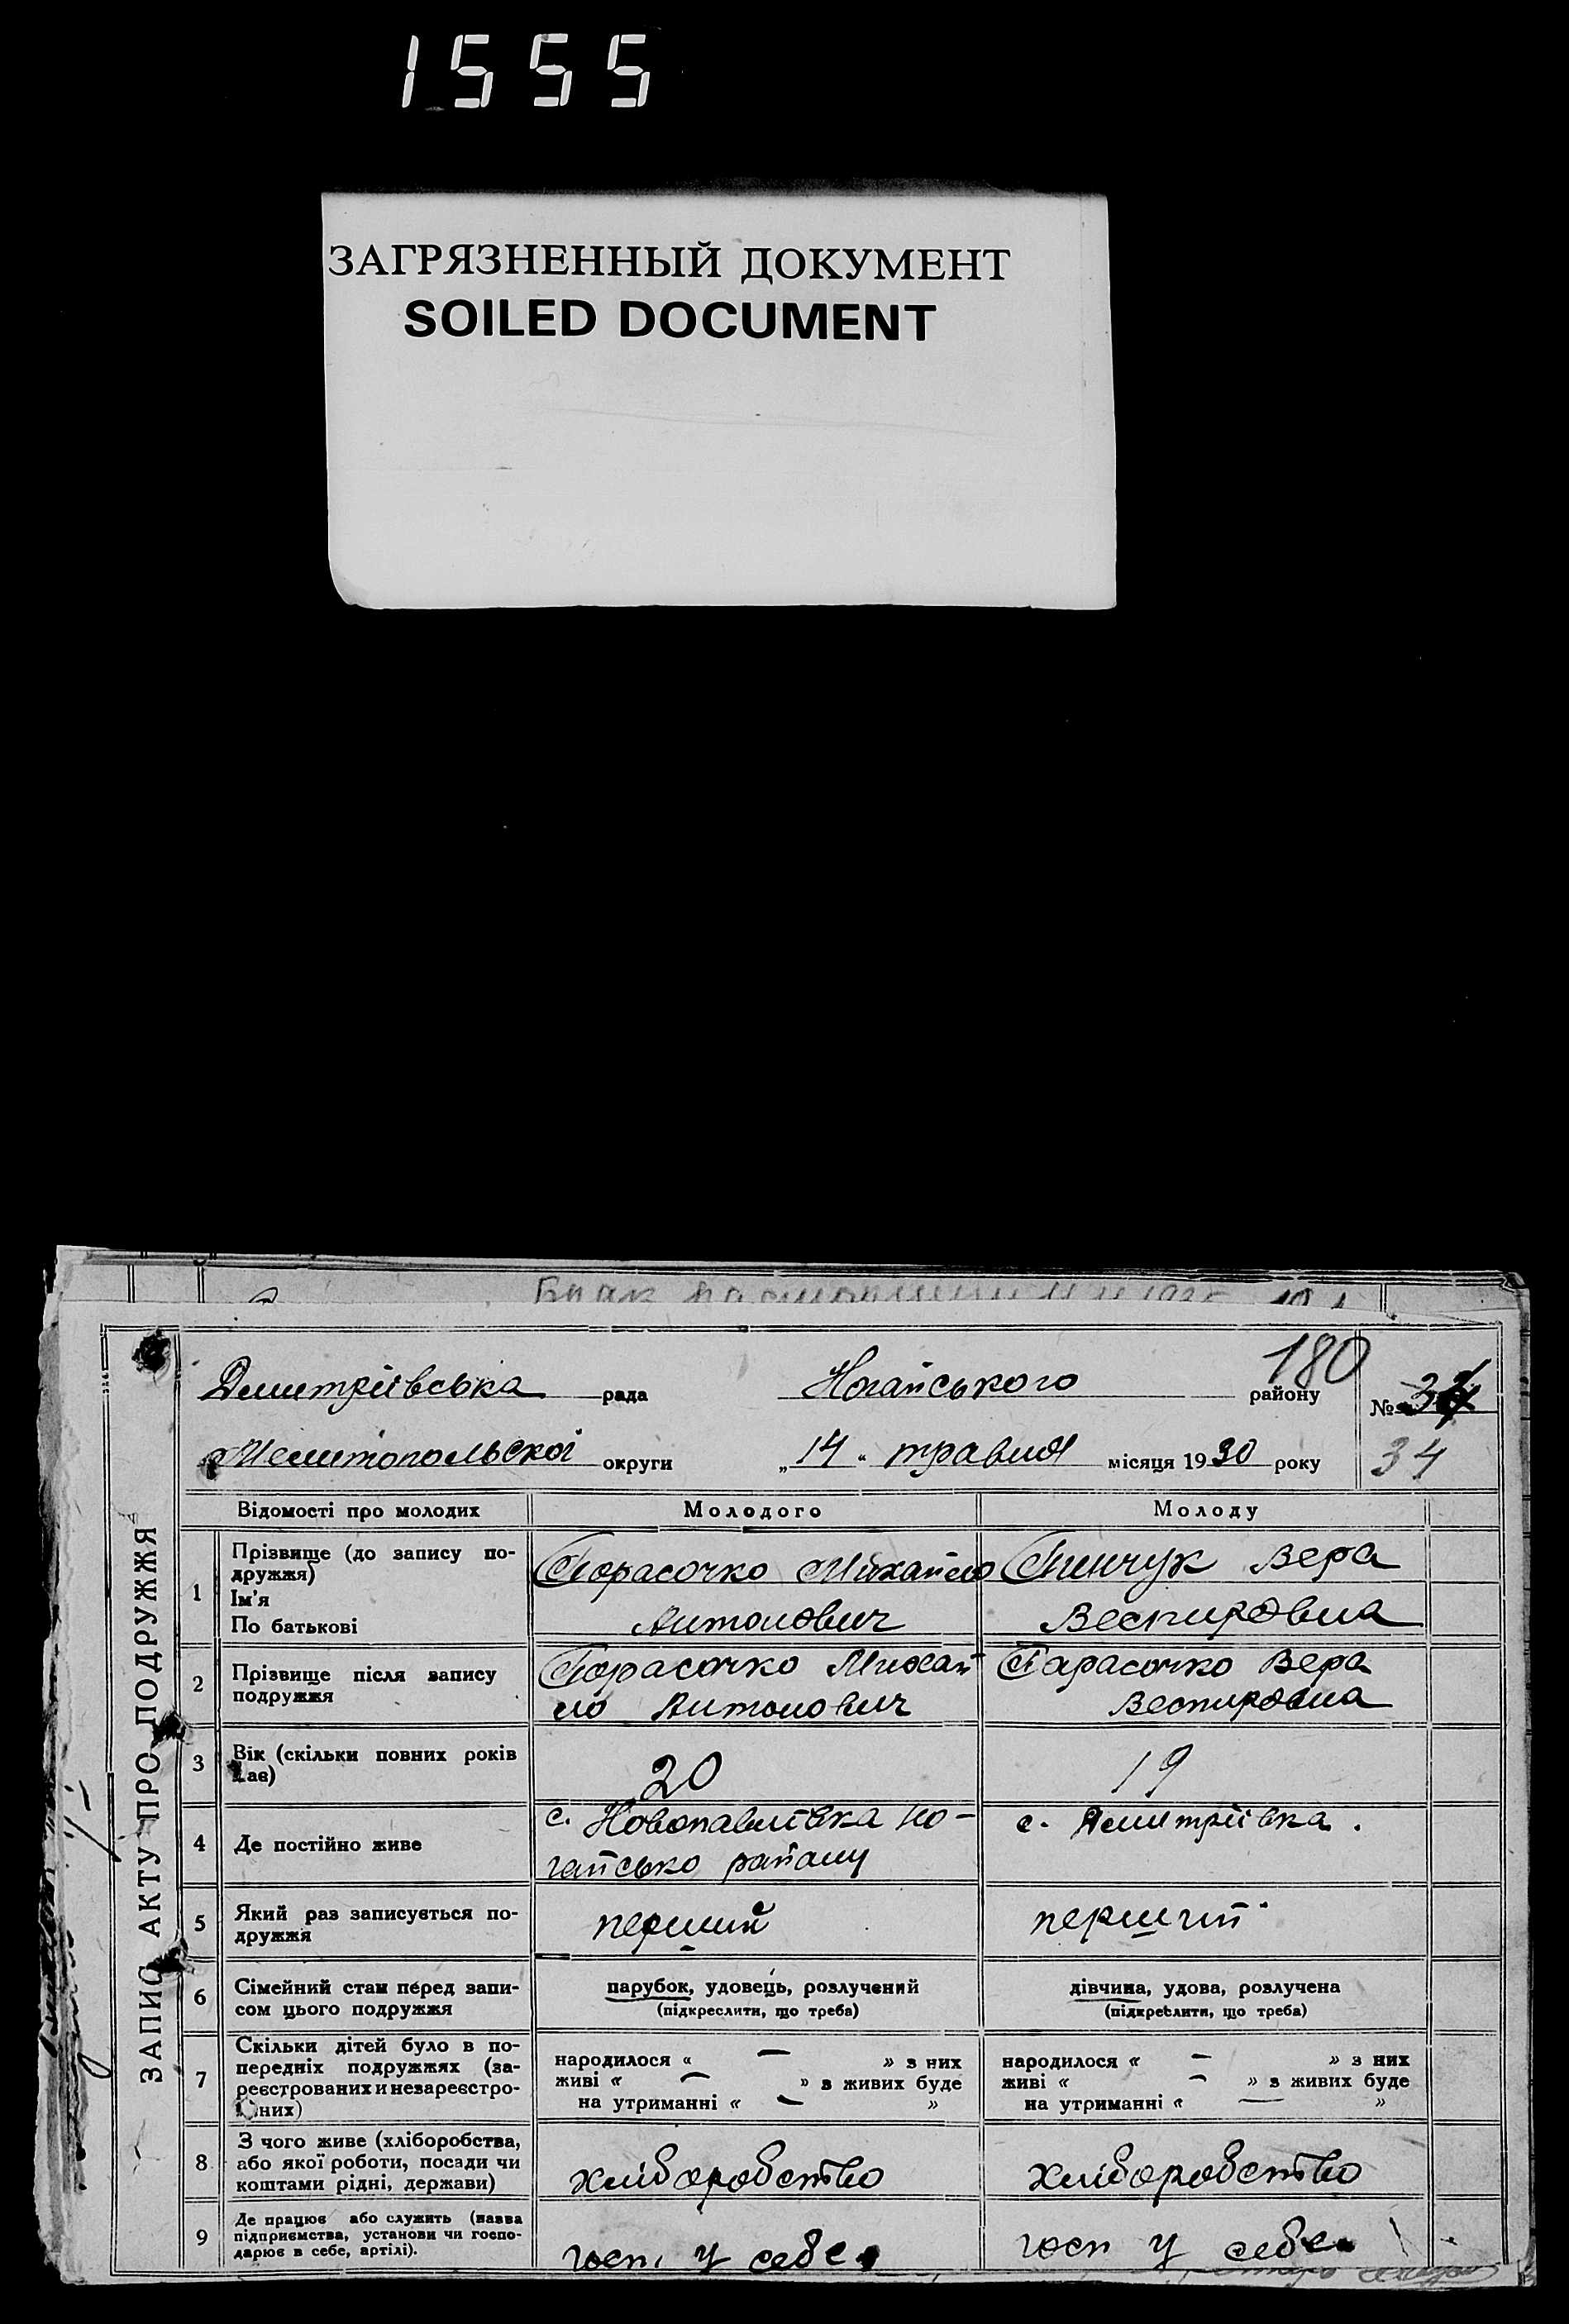 1555
ЗАГРЯЗНЕННЫЙ ДОКУМЕНТ
SOILED DOCUMENT
180
Дмитріївська рада Ногайського району № 34
Мелитопольскої округи „14" травня місяця 1930 року
34
ЗАПИС АКТУ ПРО ПОДРУЖЖЯ
Відомості про молодих Молодого Молоду
1 Прізвище (до запису подружжя)
Ім'я
По батькові
Тарасочко Михайло
Антонович
Пинчук Вера
2 Прізвище після запису
подружжя
Тарасочко Михай
ло Антонович
Тарасочко Вера
3 Вік (скільки повних років
має)
20
19
4 Де постійно живе
с. Новопавлівка но-
гайсько району
с. Дмитріївка.
5 Який раз записується по-
дружжя
перший
перший
6 Сімейний стан перед запи-
сом цього подружжя
парубок, удовець, розлучений
(підкреслити, що треба)
дівчина, удова, розлучена
(підкреслити, що треба)
7 Скільки дітей було в по-
передніх подружжях (за-
реєстрованих и незареєстро-
ваних)
народилося « — » з них
живі « — » з живих буде
на утриманні « — »
народилося « — » з них
живі « — » з живих буде
на утриманні « — »
8 З чого живе (хліборобства,
або якої роботи, посади чи
коштами рідні, держави)
хліборобство
хліборобство
9 Де працює або служить (назва
підприємства, установи чи госпо-
дарює в себе, артілі).
госп. у себе
госп у себе